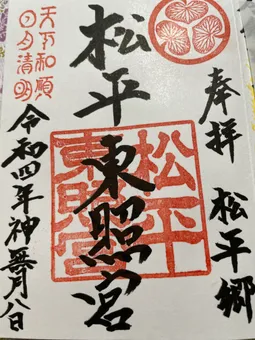 奉拝 松平郷
松平東照宮
松平
東照宮
天下和順
日月清明
令和四年神無月八日